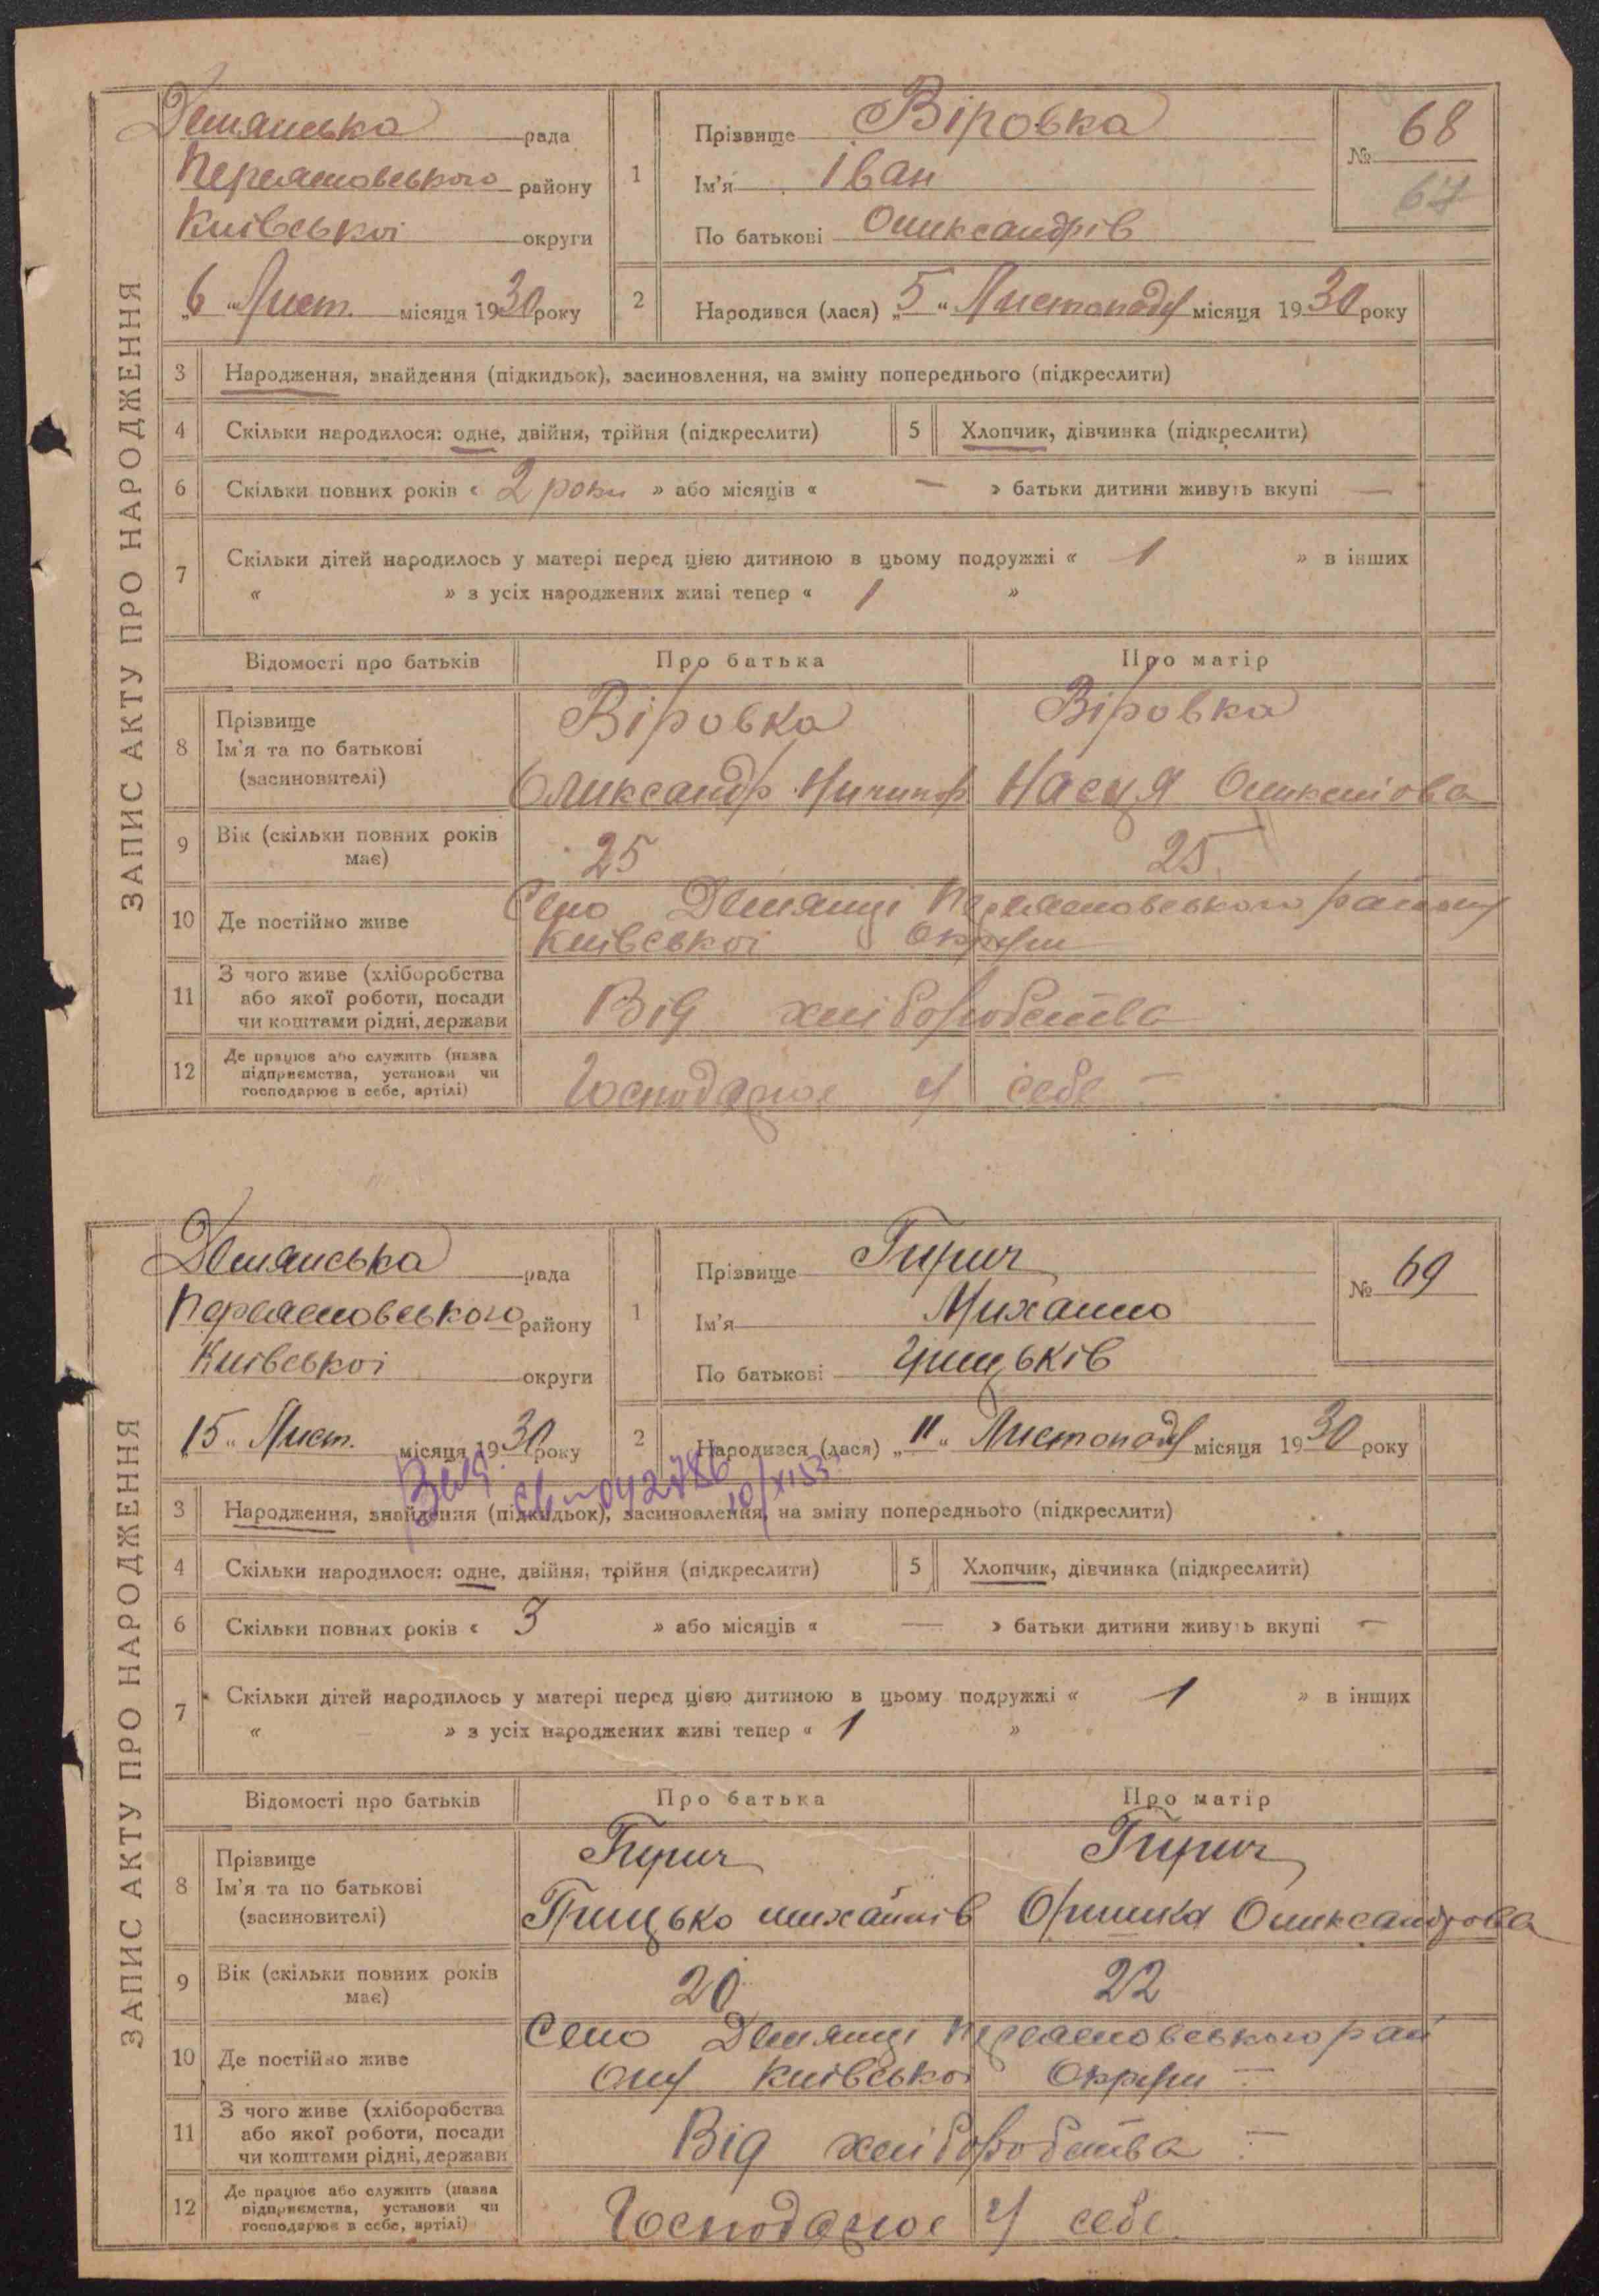 ЗАПИС АКТУ ПРО НАРОДЖЕННЯ
Демянська рада
Переяславського району
Київської округи
„6“ Лист. місяця 1930 року
1
Прізвище Віровка
Ім'я Іван
По батькові Олександрів
№ 68
67
2 Народився (лася) „5“ Листопаду місяця 1930 року
3 Народження, знайдення (підкидьок), засиновлення, на зміну попереднього (підкреслити)
4 Скільки народилося: одне, двійня, трійня (підкреслити)
5 Хлопчик, дівчинка (підкреслити)
6 Скільки повних років « 2 роки » або місяців « — » батьки дитини живуть вкупі —
7 Скільки дітей народилось у матері перед цією дитиною в цьому подружжі « 1 » в інших
« » з усіх народжених живі тепер « 1 »
Відомості про батьків Про батька Про матір
8 Прізвище
Ім'я та по батькові
(засиновителі)
Віровка Віровка
Олександр Ничипор Насця
9 Вік (скільки повних років
має)
25 25
10 Де постійно живе
Село Демянці Переяславського району
Київської Округи
11 З чого живе (хліборобства
або якої роботи, посади
чи коштами рідні, держави
Від хліборобства
12 Де працює або служить (назва
підприємства, установи чи
господарює в себе, артілі)
Господарює у себе —
ЗАПИС АКТУ ПРО НАРОДЖЕННЯ
Демянська рада
Переяславського району
Київської округи
„15“ Лист. місяця 1930 року
1
Прізвище Гирич
Ім'я Михайло
По батькові Грицьків
№ 69
2 Народився (лася) „11“ Листопаду місяця 1930 року
042786
10/XI53
3 Народження, знайдення (підкидьок), засиновлення, на зміну попереднього (підкреслити)
4 Скільки народилося: одне, двійня, трійня (підкреслити)
5 Хлопчик, дівчинка (підкреслити)
6 Скільки повних років « 3 » або місяців « — » батьки дитини живуть вкупі —
7 Скільки дітей народилось у матері перед цією дитиною в цьому подружжі « 1 » в інших
« » з усіх народжених живі тепер « 1 »
Відомості про батьків Про батька Про матір
8 Прізвище
Ім'я та по батькові
(засиновителі)
Гирич Гирич
Грицько михайлів Оришка Олександрова
9 Вік (скільки повних років
має)
20 22
10 Де постійно живе
Село Демянці Переяславського рай
ону Київської Округи —
11 З чого живе (хліборобства
або якої роботи, посади
чи коштами рідні, держави
Від хліборобства —
12 Де працює або служить (назва
підприємства, установи чи
господарює в себе, артілі)
Господарює у себе